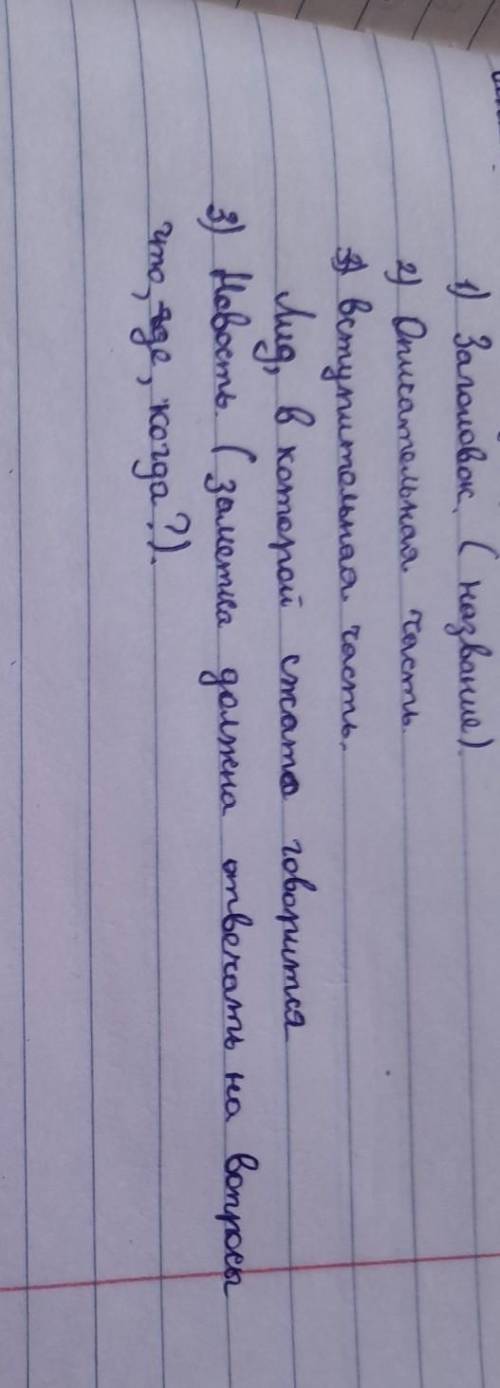 1) Заголовок. (название).
2) Описательная часть.
вступительная часть.
Лид, в которой сжато говорится
3) Новость. (заметка должна отвечать на вопросы
что, где, когда?).